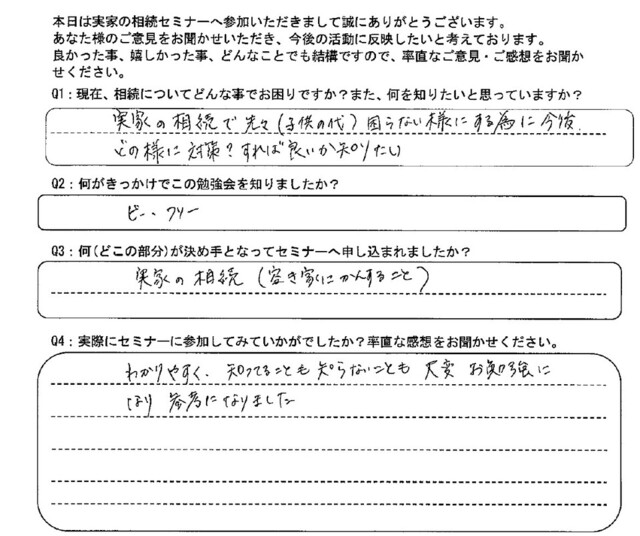 本日は実家の相続セミナーへ参加いただきまして誠にありがとうございます。
あなた様のご意見をお聞かせいただき、今後の活動に反映したいと考えております。
良かった事、嬉しかった事、どんなことでも結構ですので、率直なご意見・ご感想をお聞か
せください。
Q1：現在、相続についてどんな事でお困りですか？また、何を知りたいと思っていますか？
実家の相続で先々(子供の代)困らない様にする為に今後
どの様に対策？すれば良いか知りたい
Q2：何がきっかけでこの勉強会を知りましたか？
ビー・フリー
Q3：何(どこの部分)が決め手となってセミナーへ申し込まれましたか？
実家の相続(空き家にかんすること)
Q4：実際にセミナーに参加してみていかがでしたか？率直な感想をお聞かせください。
わかりやすく、知ってることも知らないことも 大変 お勉強に
なり 参考になりました